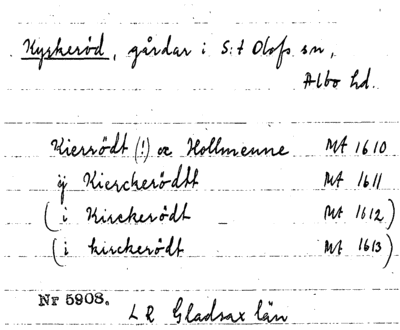 Kyskeröd, gårdar i S:t Olofs sn,
Albo hd.
Kierrödt (!) oc Hollmenne Mt 1610
ij Kierckerödtt Mt 1611
(i Kirckerödt – Mt 1612)
(i kirckerödt Mt 1613)
Nr 5908.
L R Gladsax län